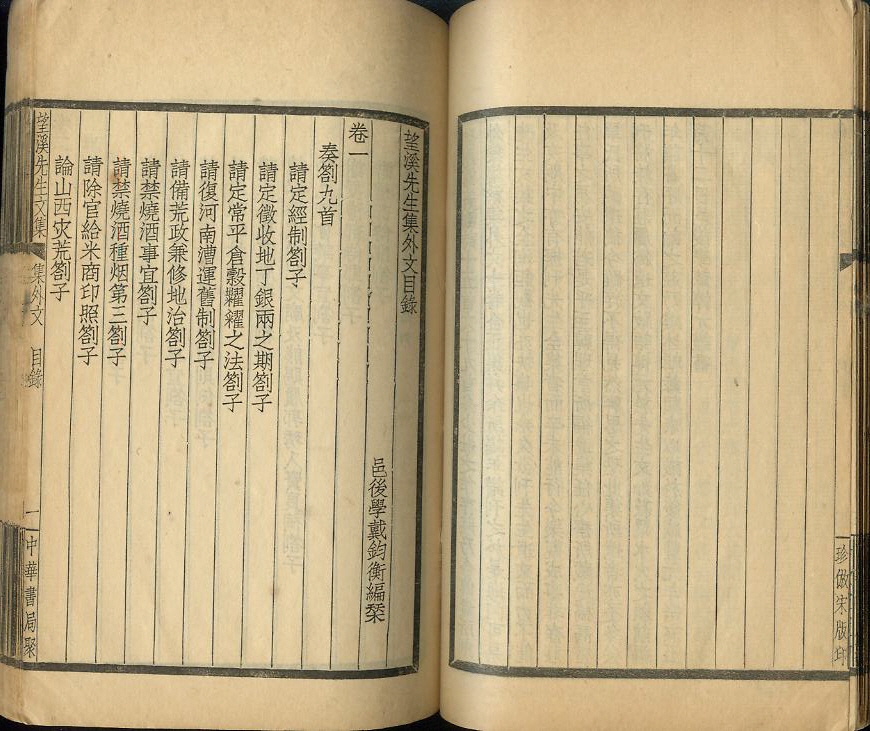 珍倣宋版印
望溪先生集外文目錄
邑後學戴鈞衡編槧
卷一
奏劄九首
請定經制劄子
請定徵收地丁銀兩之期劄子
請定常平倉穀糶糴之法劄子
請復河南漕運舊制劄子
請備荒政兼修地治劄子
請禁燒酒事宜劄子
請禁燒酒種烟第三劄子
請除官給米商印照劄子
論山西灾荒劄子
望溪先生文集 集外文 目錄 一 中華書局聚